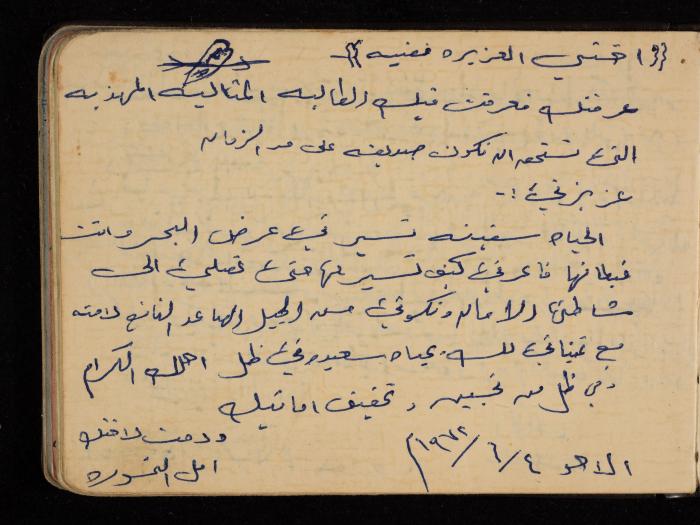 {{ اختي العزيزه فضيه }}
عرفتك فعرفت فيك الطالبه المثاليه المهذبه
التي تستحق ان تكون صديقه على مد الزمان
عزيزتي :-
الحياه سفينه تسير في عرض البحر وانت
قبطانها فاعرفي كيف تسير بها حتى تصلي الى
شاطئ الامان وتكوني من الجيل الصاعد النافع لامته
مع تمنياتي لك بحياه سعيده في ظل اهلك الكرام
وفي ظل من تحبين وتحقيق امانيك
ودمت لاختك
امل
الاحد ٤/٦/١٩٧٢م